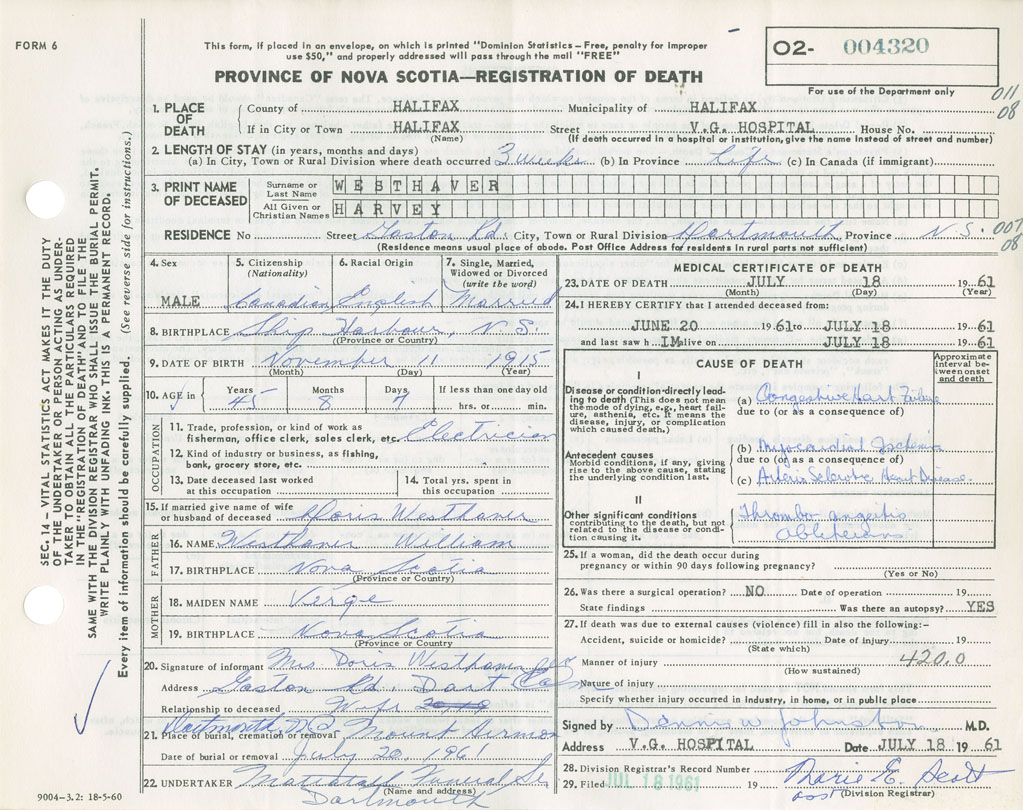 FORM 6
This form, if placed in an envelope, on which is printed "Dominion Statistics – Free, penalty for improper
use $50," and properly addressed will pass through the mail "FREE"
PROVINCE OF NOVA SCOTIA—REGISTRATION OF DEATH
02- 004320
For use of the Department only
011
08
SEC. 14 – VITAL STATISTICS ACT MAKES IT THE DUTY
OF THE UNDERTAKER OR PERSON ACTING AS UNDER-
TAKER TO OBTAIN ALL THE PARTICULARS REQUIRED
IN THE "REGISTRATION OF DEATH" AND TO FILE THE
SAME WITH THE DIVISION REGISTRAR WHO SHALL ISSUE THE BURIAL PERMIT.
WRITE PLAINLY WITH UNFADING INK. THIS IS A PERMANENT RECORD.
Every item of information should be carefully supplied. (See reverse side for instructions.)
1. PLACE OF DEATH
County of HALIFAX Municipality of HALIFAX
If in City or Town HALIFAX Street V.G. HOSPITAL House No.
(Name) (If death occurred in a hospital or institution, give the name instead of street and number)
2. LENGTH OF STAY (in years, months and days)
(a) In City, Town or Rural Division where death occurred 3 weeks (b) In Province Life (c) In Canada (if immigrant)
3. PRINT NAME OF DECEASED
Surname or Last Name WESTHAVER
All Given or Christian Names HARVEY
RESIDENCE No Street Gaston Rd. City, Town or Rural Division Dartmouth Province N.S. 007
08
(Residence means usual place of abode. Post Office Address for residents in rural parts not sufficient)
4. Sex MALE
5. Citizenship (Nationality) Canadian
6. Racial Origin English
7. Single, Married, Widowed or Divorced (write the word) Married
8. BIRTHPLACE Ship Harbour, N.S.
(Province or Country)
9. DATE OF BIRTH November 11 1915
(Month) (Day) (Year)
10. AGE in Years 45 Months 8 Days 7 If less than one day old hrs. or min.
OCCUPATION
11. Trade, profession, or kind of work as
fisherman, office clerk, sales clerk, etc. Electrician
12. Kind of industry or business, as fishing,
bank, grocery store, etc.
13. Date deceased last worked
at this occupation
14. Total yrs. spent in
this occupation
15. If married give name of wife
or husband of deceased Doris Westhaver
FATHER
16. NAME Westhaver William
17. BIRTHPLACE Nova Scotia
(Province or Country)
MOTHER
18. MAIDEN NAME Verge
19. BIRTHPLACE Nova Scotia
(Province or Country
20. Signature of informant Mrs Doris Westhaver
Address Gaston Rd. Dart
Relationship to deceased Wife
Dartmouth, NS
21. Place of burial, cremation or removal Mount Hermon
Date of burial or removal July 20, 1961
22. UNDERTAKER Mattatall Funeral
(Name and address)
Dartmouth
9004–3.2: 18-5-60
MEDICAL CERTIFICATE OF DEATH
23. DATE OF DEATH JULY 18 19 61
(Month) (Day) (Year)
24. I HEREBY CERTIFY that I attended deceased from:
JUNE 20 19 61 to JULY 18 19 61
and last saw h IM alive on JULY 18 19 61
CAUSE OF DEATH
Approximate interval between onset and death
I
Disease or condition directly lead-
ing to death (This does not mean
the mode of dying, e.g., heart fail-
ure, asthenia, etc. It means the
disease, injury, or complication
which caused death.)
(a) Congestive Hart Failure
due to (or as a consequence of)
Antecedent causes
Morbid conditions, if any, giving
rise to the above cause, stating
the underlying condition last.
(b) Myocardial Ischemia
due to (or as a consequence of)
(c) Heart Disease.
II
Other significant conditions
contributing to the death, but not
related to the disease or condi-
tion causing it.
Thrombo angiitis
obliterans
25. If a woman, did the death occur during
pregnancy or within 90 days following pregnancy?
(Yes or No)
26. Was there a surgical operation? NO Date of operation 19
State findings Was there an autopsy? YES
27. If death was due to external causes (violence) fill in also the following:–
Accident, suicide or homicide? Date of injury 19
(State which)
Manner of injury 420.0
(How sustained)
Nature of injury
Specify whether injury occurred in industry, in home, or in public place
Signed by Dennis W Johnston M.D.
Address V.G. HOSPITAL Date JULY 18 19 61
28. Division Registrar's Record Number
29. Filed JUL 18 1961 19 Marie E. Scott
(Division Registrar)